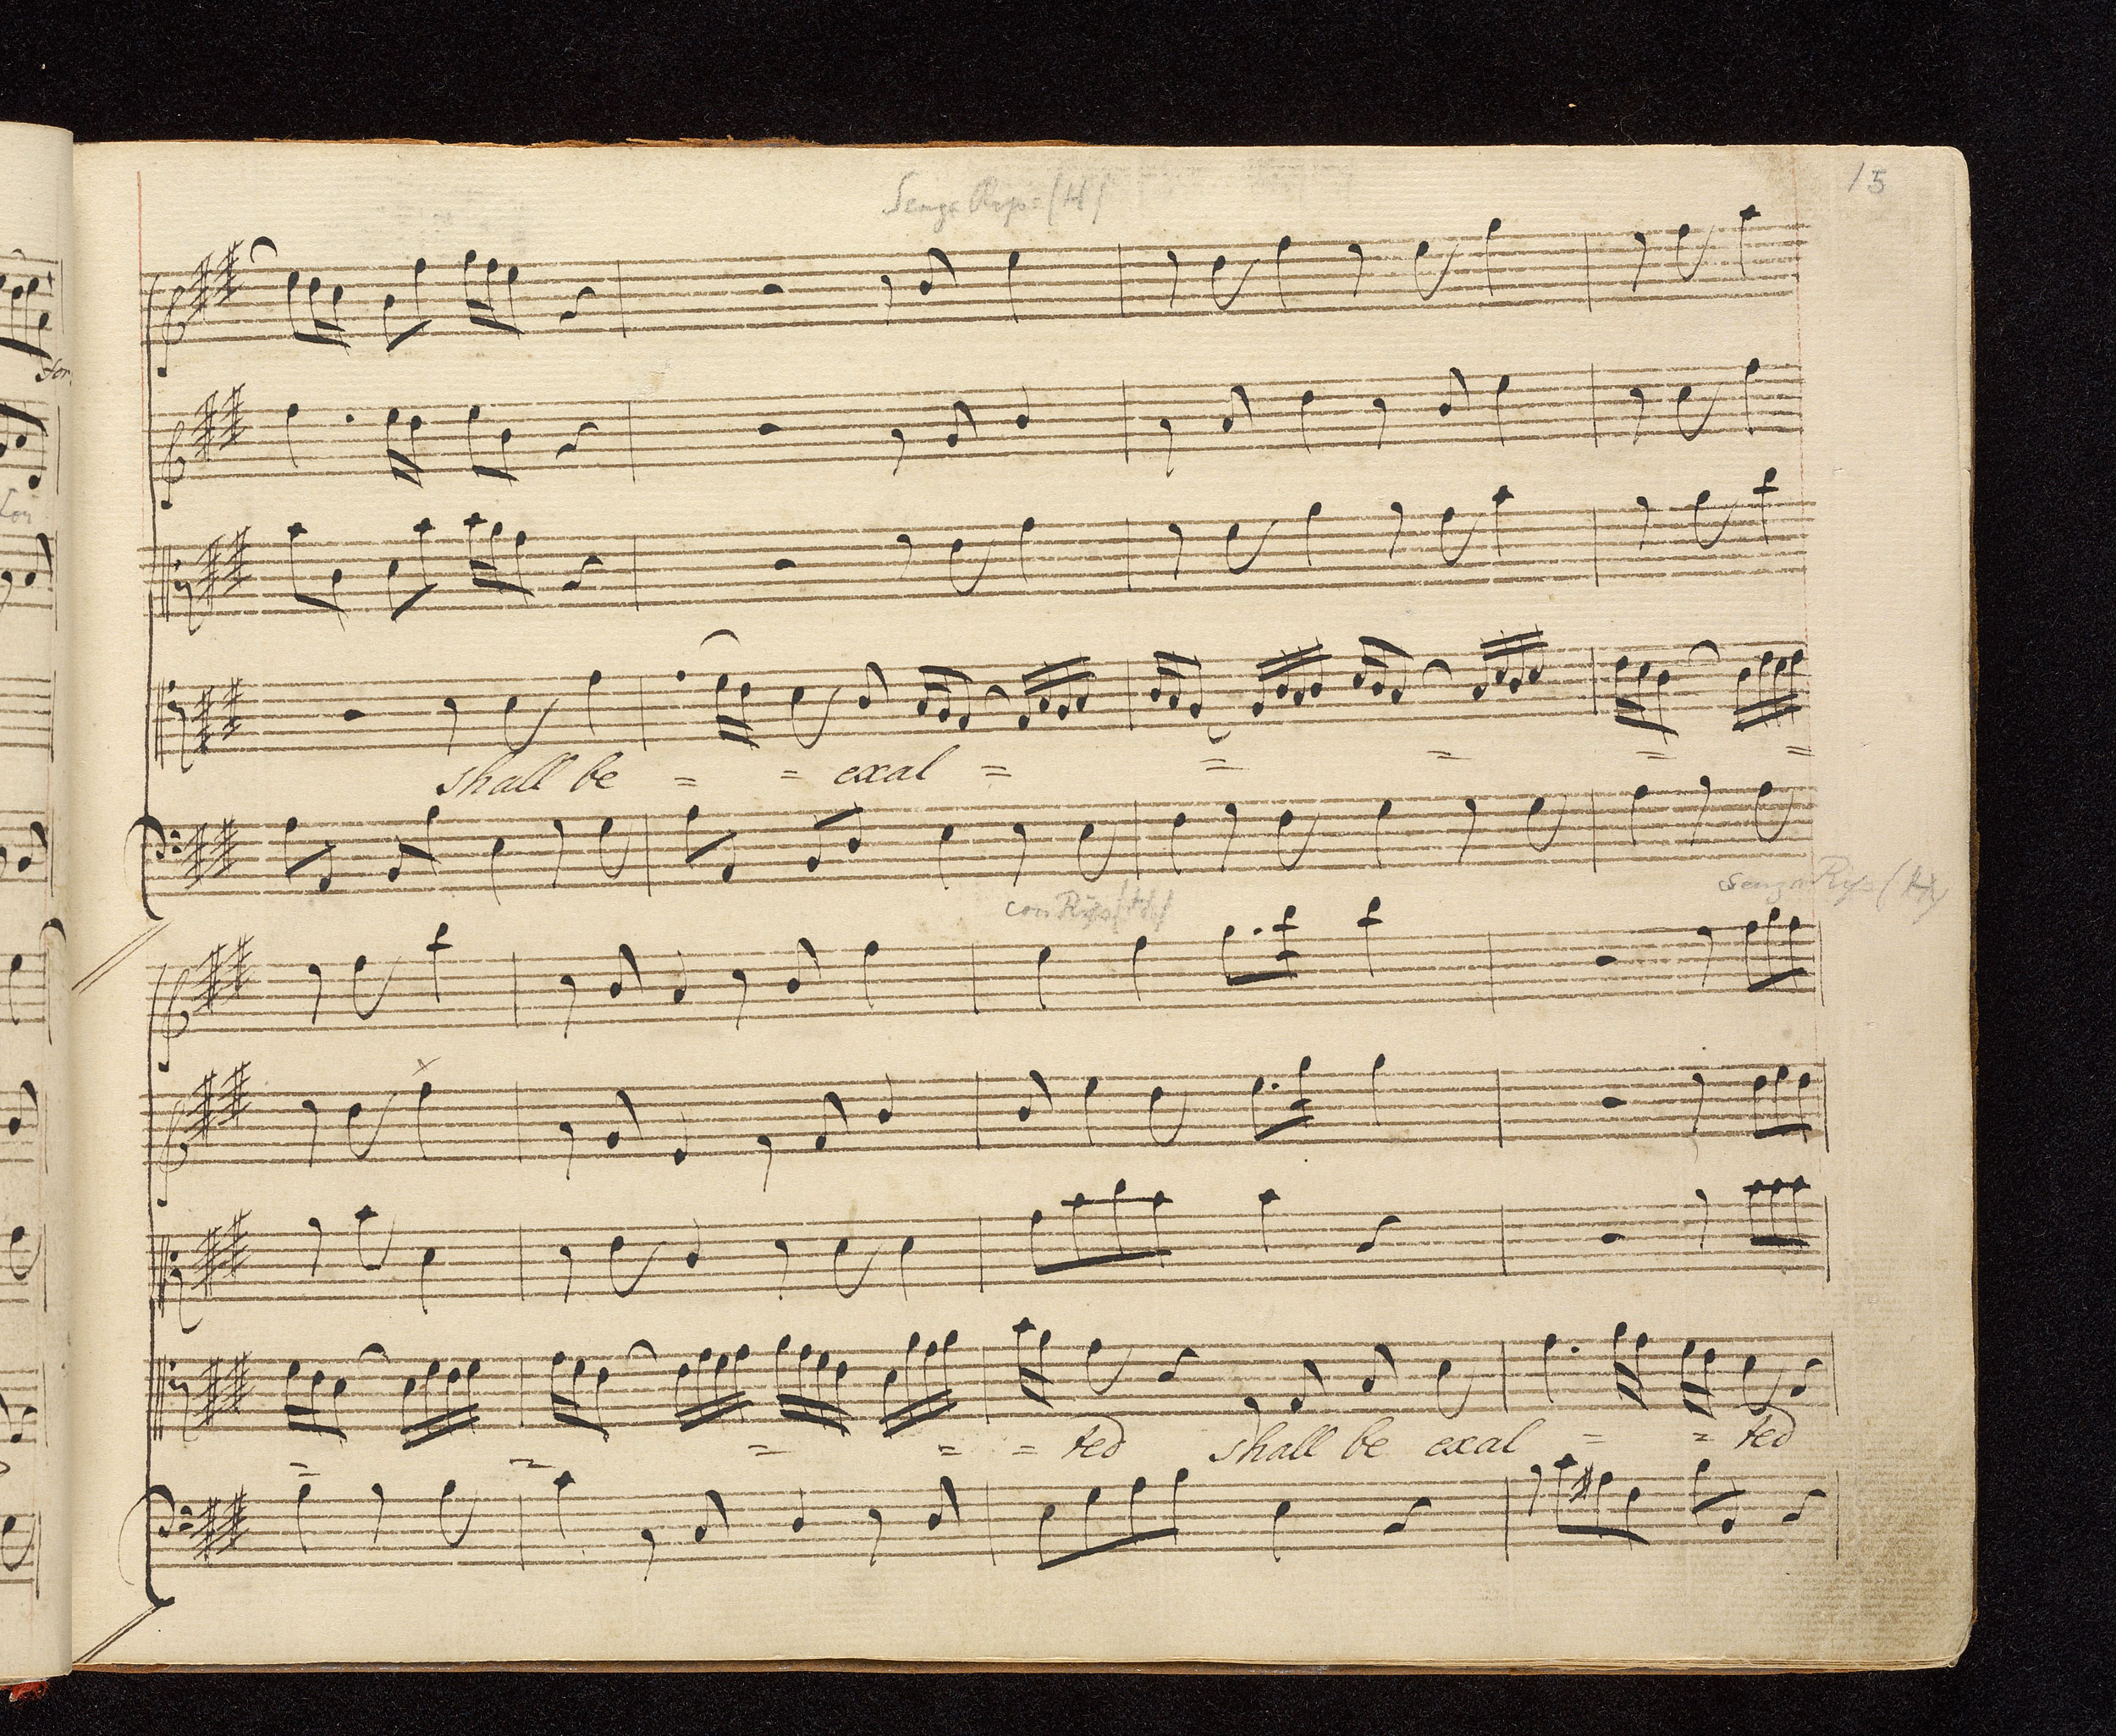 15
Senza Rip= (H)
for
for
shall be = = exal = = = = =
con Rip (H)
senza Rip (H)
= = = = = ted shall be exal = = ted